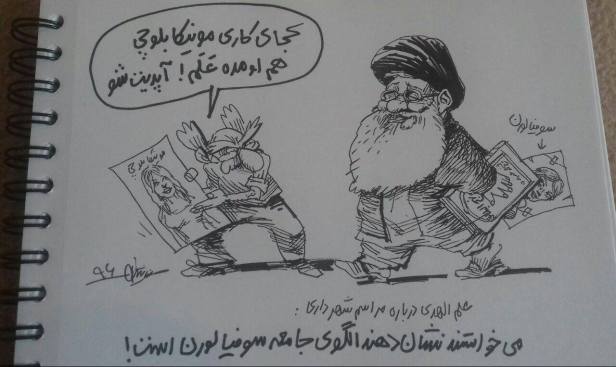 کجای کاری مونیکا بلوچی
هم اومده عَلَم! آپدیت شو
سوفیا لورن
علم الهدی درباره مراسم شهرداری:
می خواستند نشان دهند الگوی جامعه سوفیا لورن است!
۹۶